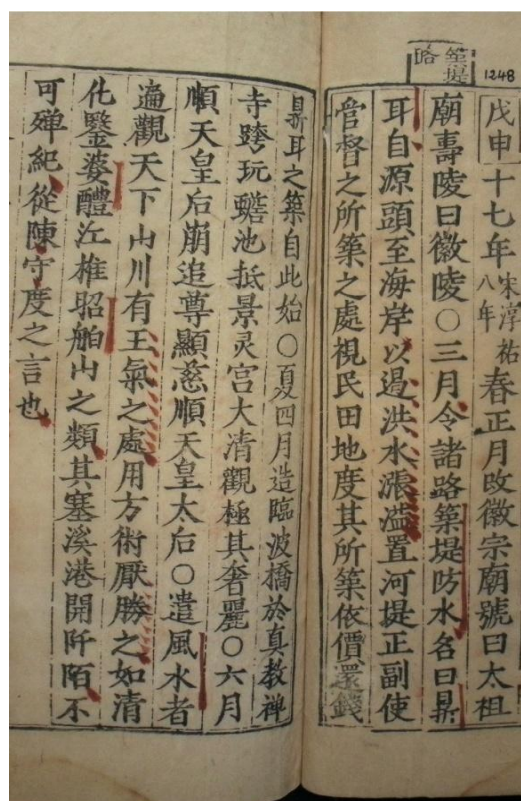 1248
築堤
戊申十七年宋淳祐八年春正月改徽宗廟號曰太祖
廟壽陵曰徽陵○三月令諸路築堤防水名曰鼎
耳自源頭至海岸以遏洪水漲溢置河堤正副使
管督之所築之處視民田地度其所築依價還錢
鼎耳之築自此始○夏四月造臨波橋於真教禅
寺跨玩蟾池抵景灵宮大清觀極其奢麗○六月
順天皇后崩追尊顯慈順天皇太后○遣風水者
遍觀天下山川有王氣之處用方術厭勝之如清
化鑿婆醴江椎昭舶山之類其塞溪港開阡陌不
可殫紀從陳守度之言也